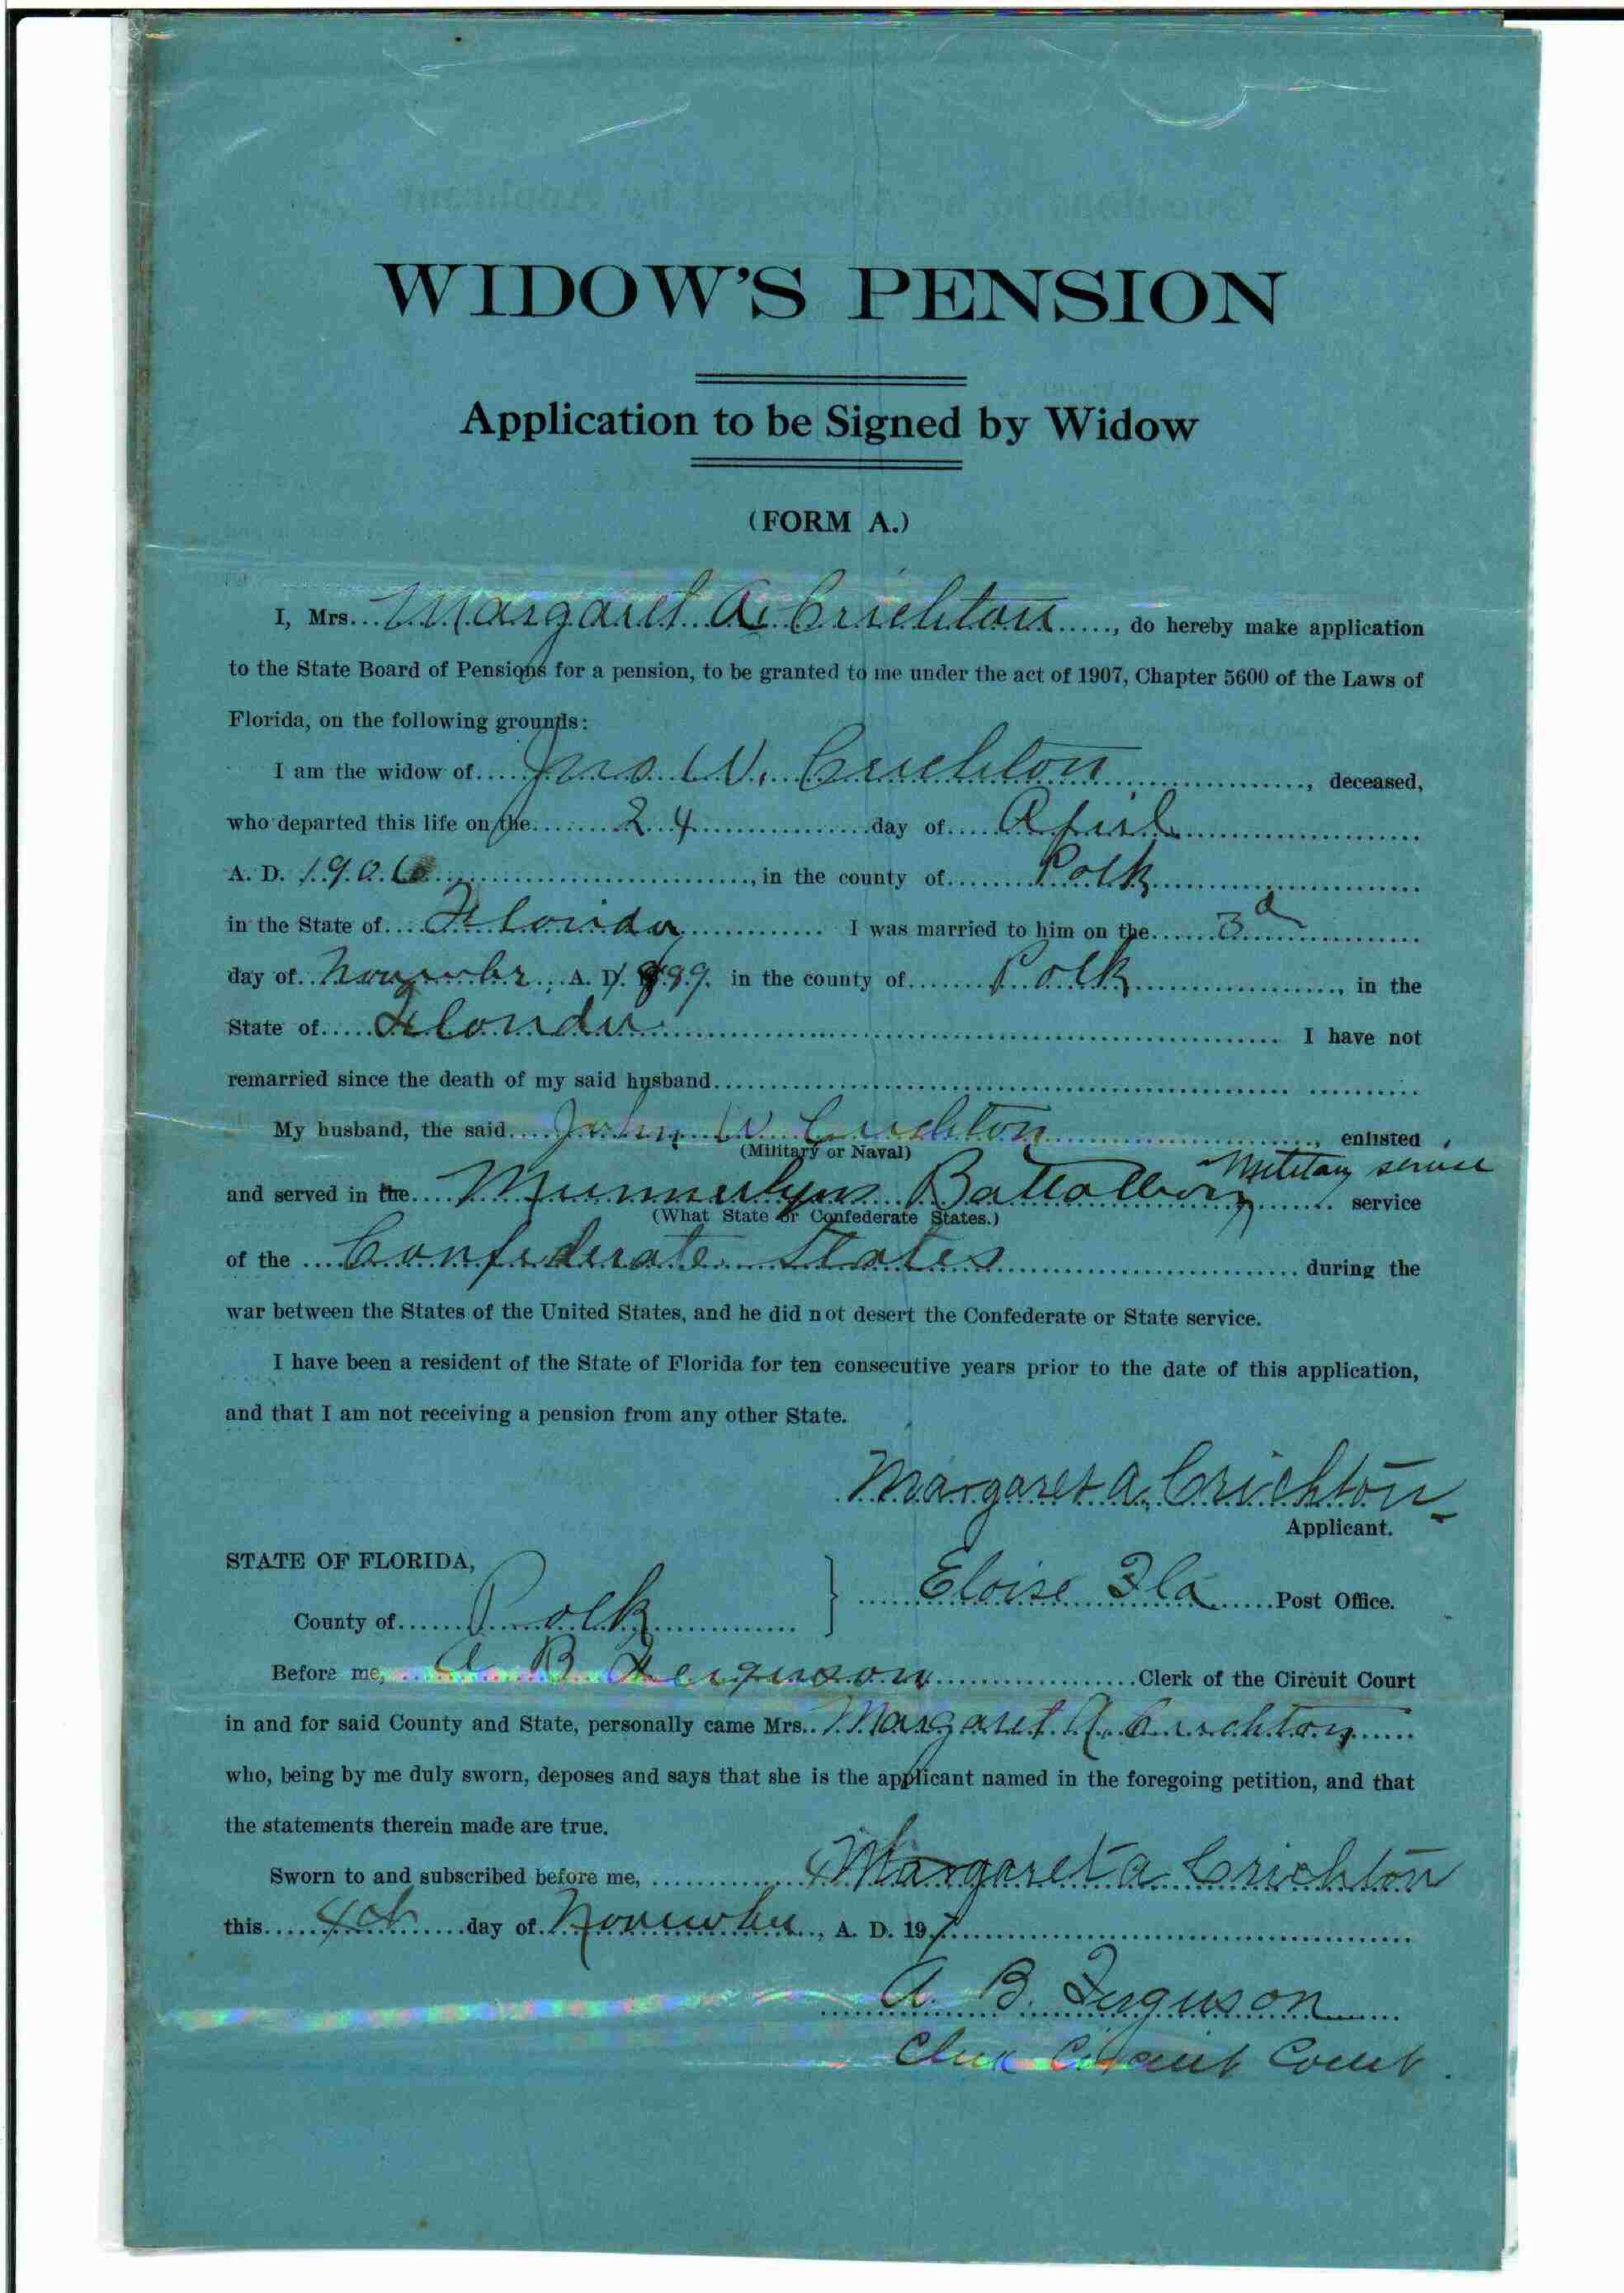 WIDOW'S PENSION
Application to be Signed by Widow
(FORM A.)
I, Mrs. Margaret A. Crichton, do hereby make application
to the State Board of Pensions for a pension, to be granted to me under the act of 1907, Chapter 5600 of the Laws of
Florida, on the following grounds:
I am the widow of Jno W. Crichton, deceased,
who departed this life on the 24 day of April
A. D. 1906, in the county of Polk
in the State of Florida I was married to him on the 3d
day of November, A. D. 1889 in the county of Polk, in the
State of Florida I have not
remarried since the death of my said husband
My husband, the said John W Crichton, enlisted
(Military or Naval)
and served in the Munnerlyns Battallion Military service service
(What State or Confederate States.)
of the Confederate States during the
war between the States of the United States, and he did not desert the Confederate or State service.
I have been a resident of the State of Florida for ten consecutive years prior to the date of this application,
and that I am not receiving a pension from any other State.
Margaret A. Crichton
Applicant.
STATE OF FLORIDA,
County of Polk } Eloise Fla Post Office.
Before me, A B Ferguson Clerk of the Circuit Court
in and for said County and State, personally came Mrs. Margaret A. Crichton
who, being by me duly sworn, deposes and says that she is the applicant named in the foregoing petition, and that
the statements therein made are true.
Sworn to and subscribed before me, Margaret A Crichton
this 4th day of November, A. D. 197
A. B. Ferguson
Clerk Circuit Court